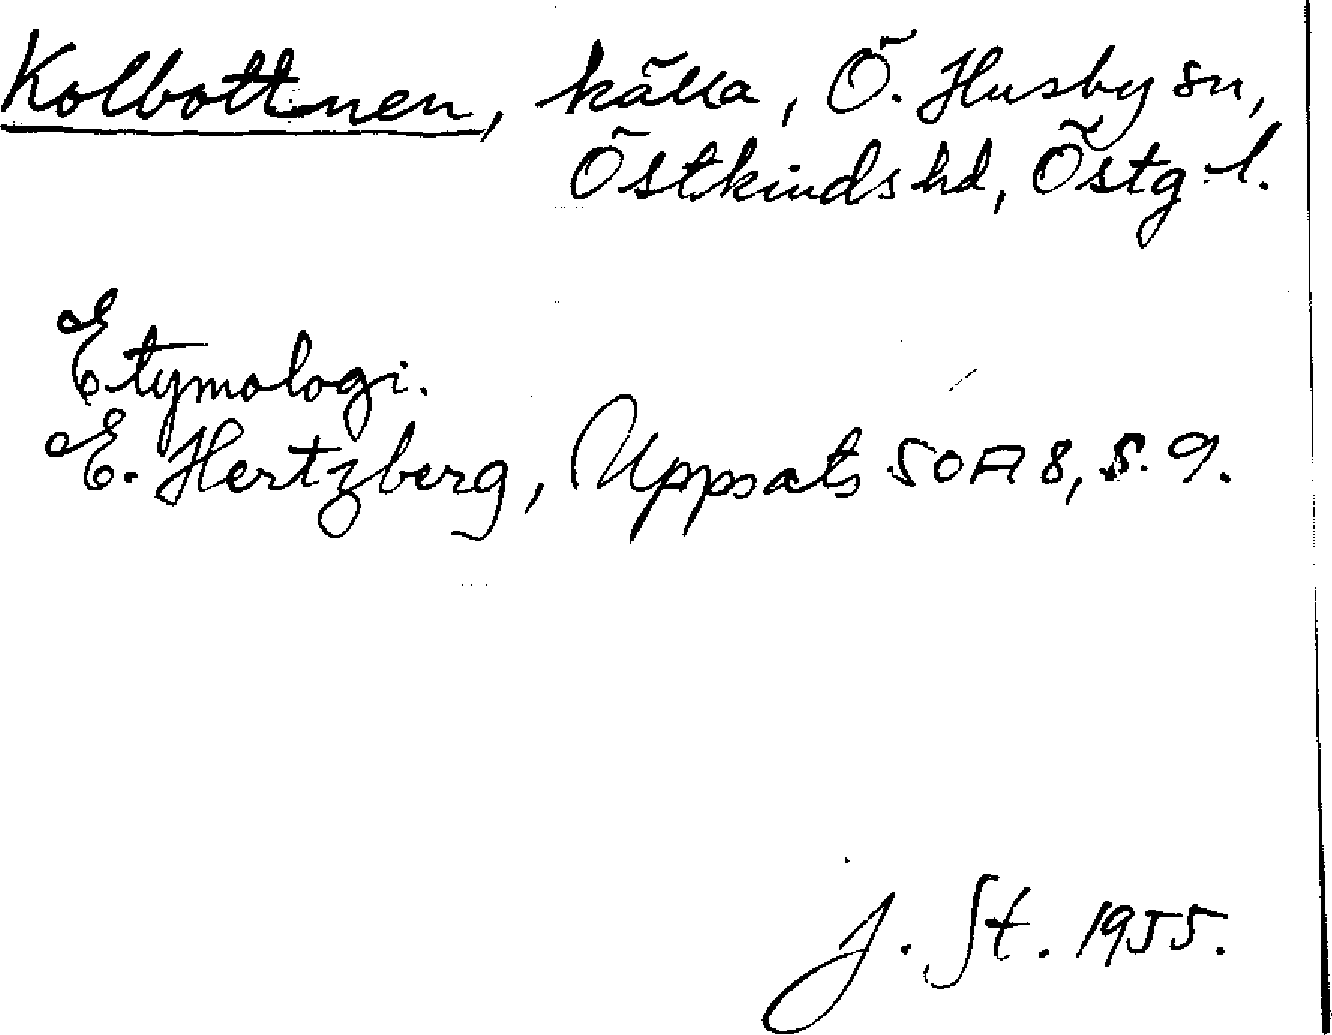 Kolbottnen, källa, Ö. Husby sn,
Östkinds hd, Östg. l.
Etymologi.
E. Hertzberg, Uppsats SOA 8, s. 9.
J. St. 1955.